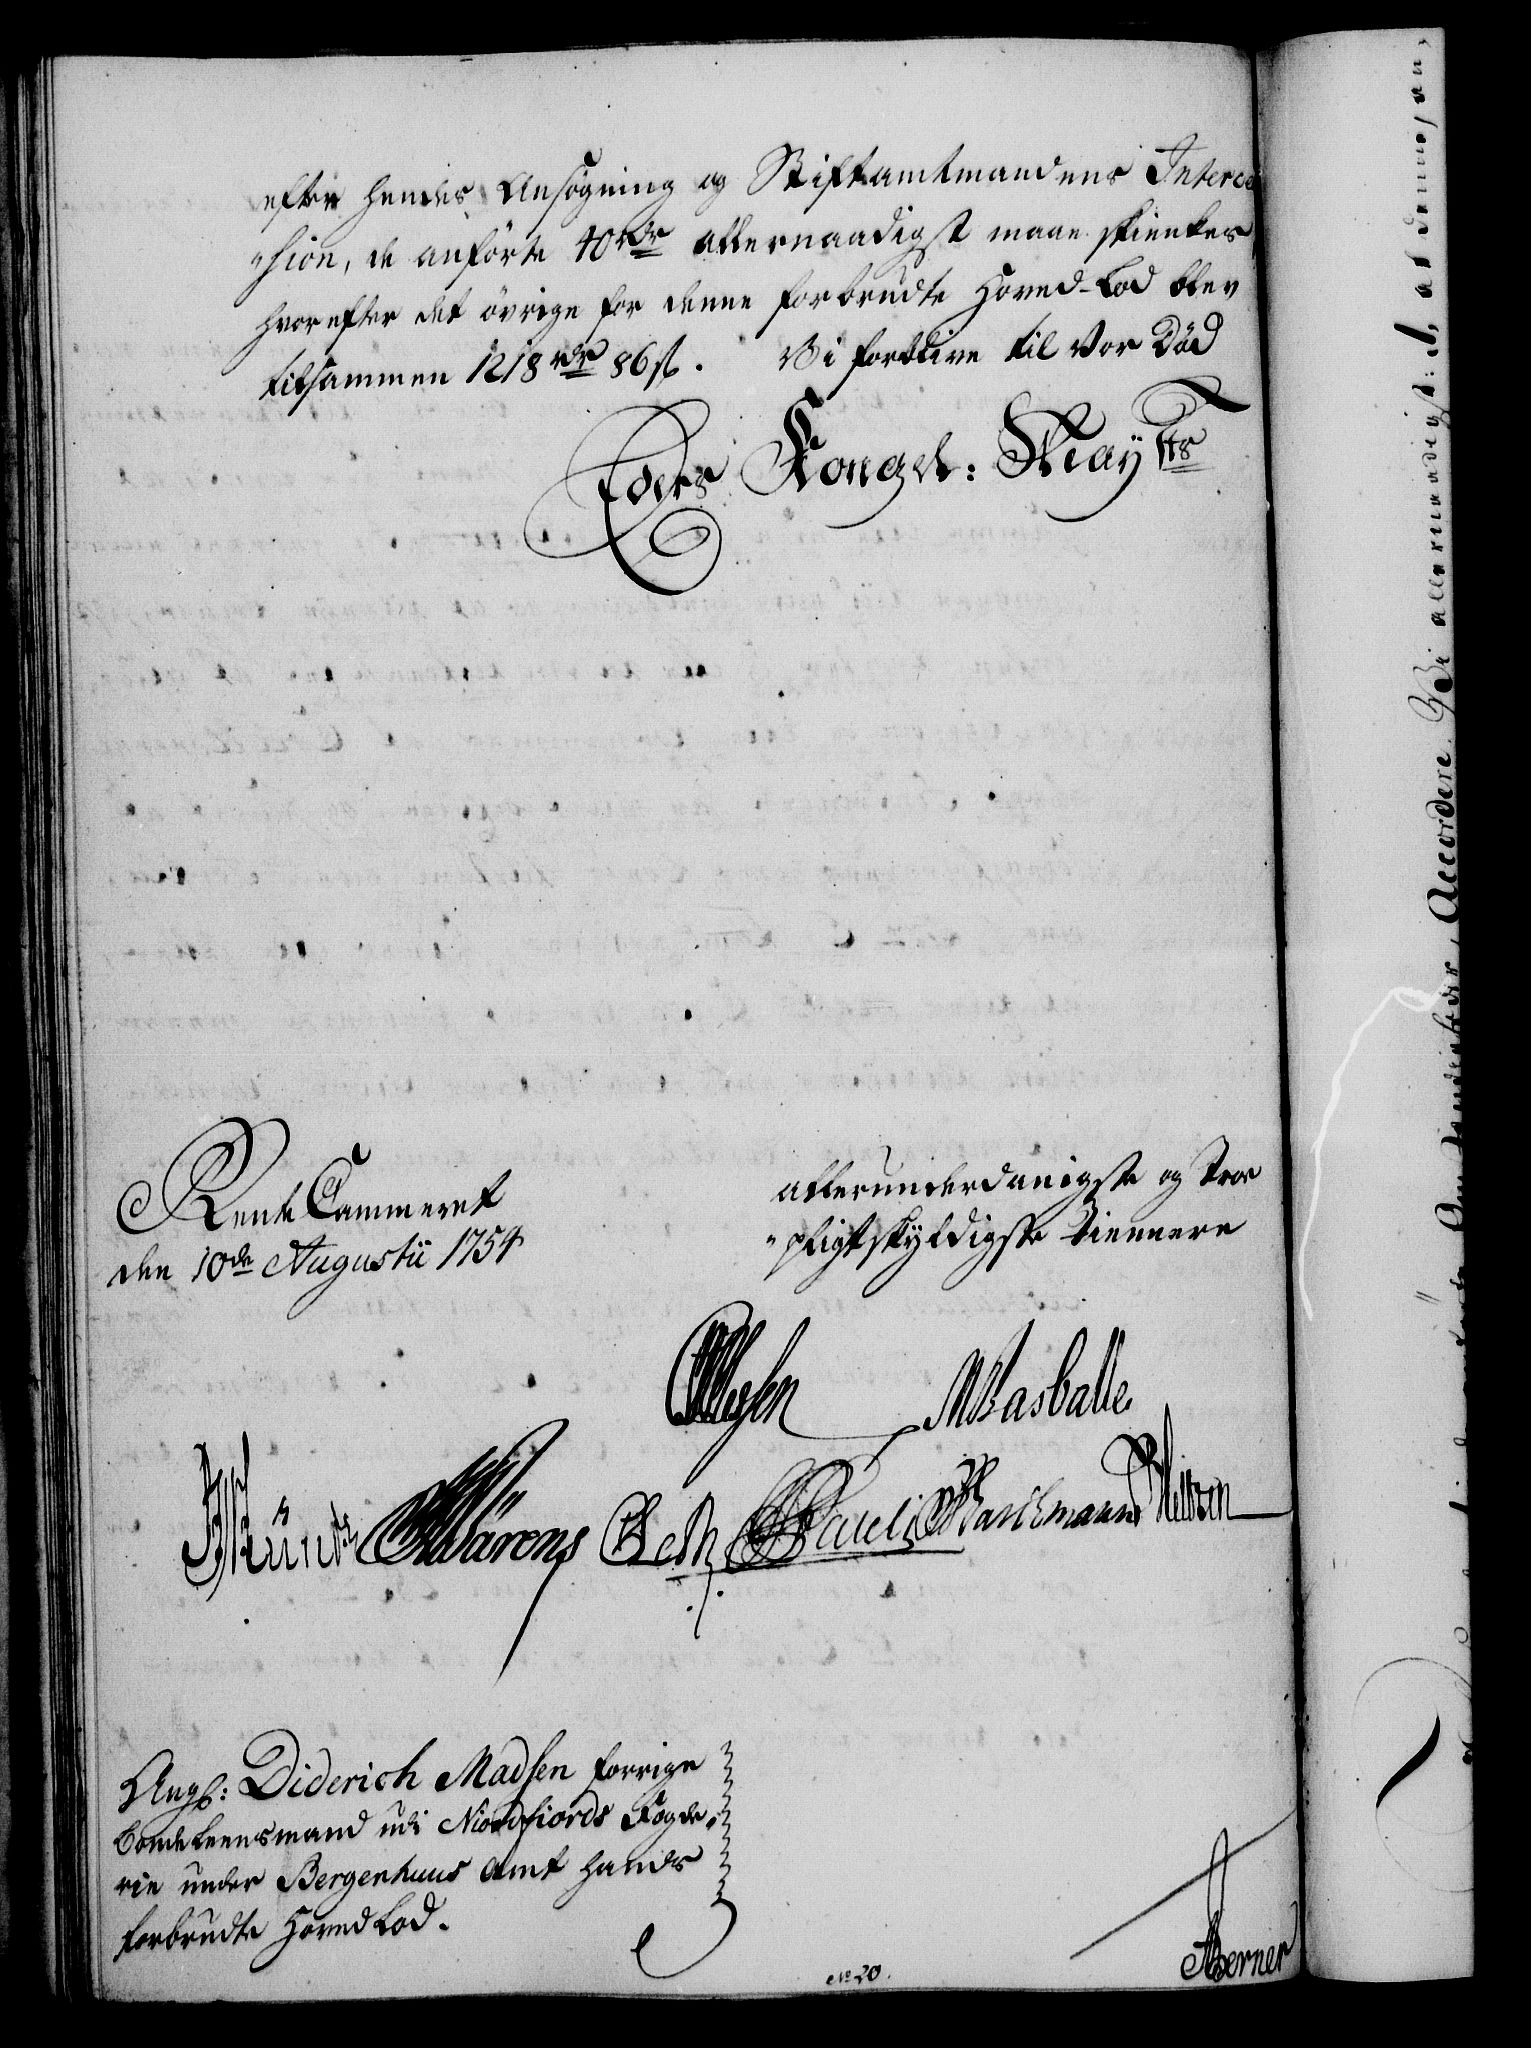 efter hendes Ansøgning og Stiftamtmandens Interces
"sion, de anførte 40 rdr allernaadigst maae skienkes
hvorefter det øvrige for denne forbrudte Hoved-Lod blev
tilsammen 1218 rdr 86 ß. Vi forblive til Vor Död
Eders Kongel: Maytts
Rente Cammeret
den 10de Augustii 1754
allerunderdanigste og Troe
"pligtskyldigste Tiennere
Wasballe
Wärens
Pauli
Marchmann
Ang: Diderich Madsen forrige
Bonde Leensmand udi Nordfiords Fogde„
rie under Bergenhuus Amt hands
forbrudte Hoved Lod.
No 20.
Berner
at denne, an
Vi allernaadigst:
Accordere.